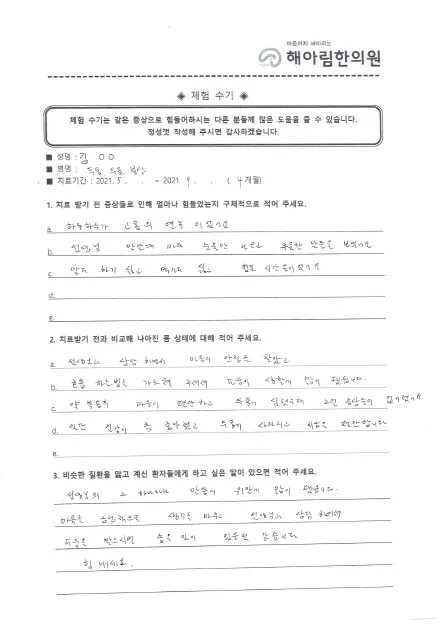 마음까지 헤아리는
해아림한의원
◈ 체험 수기 ◈
체험 수기는 같은 증상으로 힘들어하시는 다른 분들께 많은 도움을 줄 수 있습니다.
정성껏 작성해 주시면 감사하겠습니다.
■ 성명 : 김 ○○
■ 병명 : 두통, 우울, 불안
■ 치료기간 : 2021. 5. . ~ 2021. 9. . ( 4개월)
1. 치료 받기 전 증상들로 인해 얼마나 힘들었는지 구체적으로 적어 주세요.
a. 하루하루가 고통의 연속 이었어요
b. 선생님 만날때 마다 눈물만 나오고 우울한 모습을
c. 말도 하기 싫고 먹기도 싫고 힘든 시간 이었어요
d.
e.
2. 치료받기 전과 비교해 나아진 몸 상태에 대해 적어 주세요.
a. 선생님과 상담 하면서 마음의 안정을 찾았고
b. 호흡 하는법을 가르쳐 주셔서 도움이 많이 됐습니다.
c. 약 복용후 마음이 편안하고 두통이 심했는데 그런 증상들이 없어졌어요
d. 일단 건강이 좀 좋아졌고 두통이 사라지고 편안합니다
e.
3. 비슷한 질환을 앓고 계신 환자들에게 하고 싶은 말이 있으면 적어 주세요.
선생님의 그 하나하나 말씀이 위안이 많이 됐습니다.
마음을 긍정적으로 생각을 바꾸고 선생님과 상담 하면서
도움을 받으시면 좋은 일이 있을것 같습니다
힘 내세요.